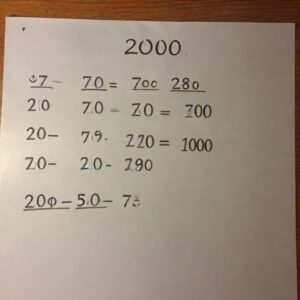 2000
7– 70 = 700 280
20 7.0 – 70 = 700
20– 79. 220 = 1000
70– 20– 290
200 – 50– 7